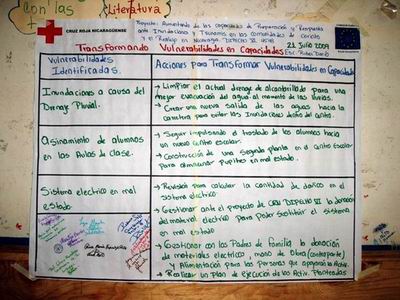 con las
(Literatura)
CRUZ ROJA NICARAGUENSE
Proyecto: Aumentando de las capacidades de Preparación y Respuesta
ante Inundaciones y Tsunamis en las comunidades de Corinto
y el Realejo en Nicaragua. DIPECHO VI
Transformando Vulnerabilidades en Capacidades
21 Julio 2009
Esc. Rubén Darío
Vulnerabilidades
Identificadas.
Acciones para Transformar Vulnerabilidades en Capacidades
Inundaciones a causa del
Drenaje Pluvial.
→ Limpiar el actual drenaje de alcantarillado para una
mejor evacuación del agua al momento de las lluvias.
→ Crear una nueva salida de las aguas hacia la
carretera para evitar las Inundaciones dentro del centro.
Asinamiento de alumnos
en las Aulas de Clase.
→ Seguir impulsando el traslado de los alumnos hacia
un nuevo centro escolar.
→ Construcción de una segunda planta en el centro escolar
para almacenar pupitres en mal estado.
Sistema electrico en mal
estado
→ Revisión para calcular la cantidad de daños en el
sistema electrico
→ Gestionar ante el proyecto de CRN DIPECHO VI la donación
del material electrico para poder sustituir el sistema
en mal estado
→ Gestionar con los Padres de familia la donación
de materiales electrico, mano de Obra (contraparte)
y Alimentación para las personas que apoyaran la Activ.
→ Realizar un Plan de Ejecución de las Activ. Planteadas